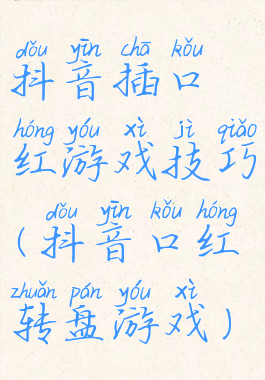 dǒu yīn chā kǒu
抖音插口
hóng yóu xì jì qiǎo
红游戏技巧
dǒu yīn kǒu hóng
（抖音口红
zhuǎn pán yóu xì
转盘游戏）